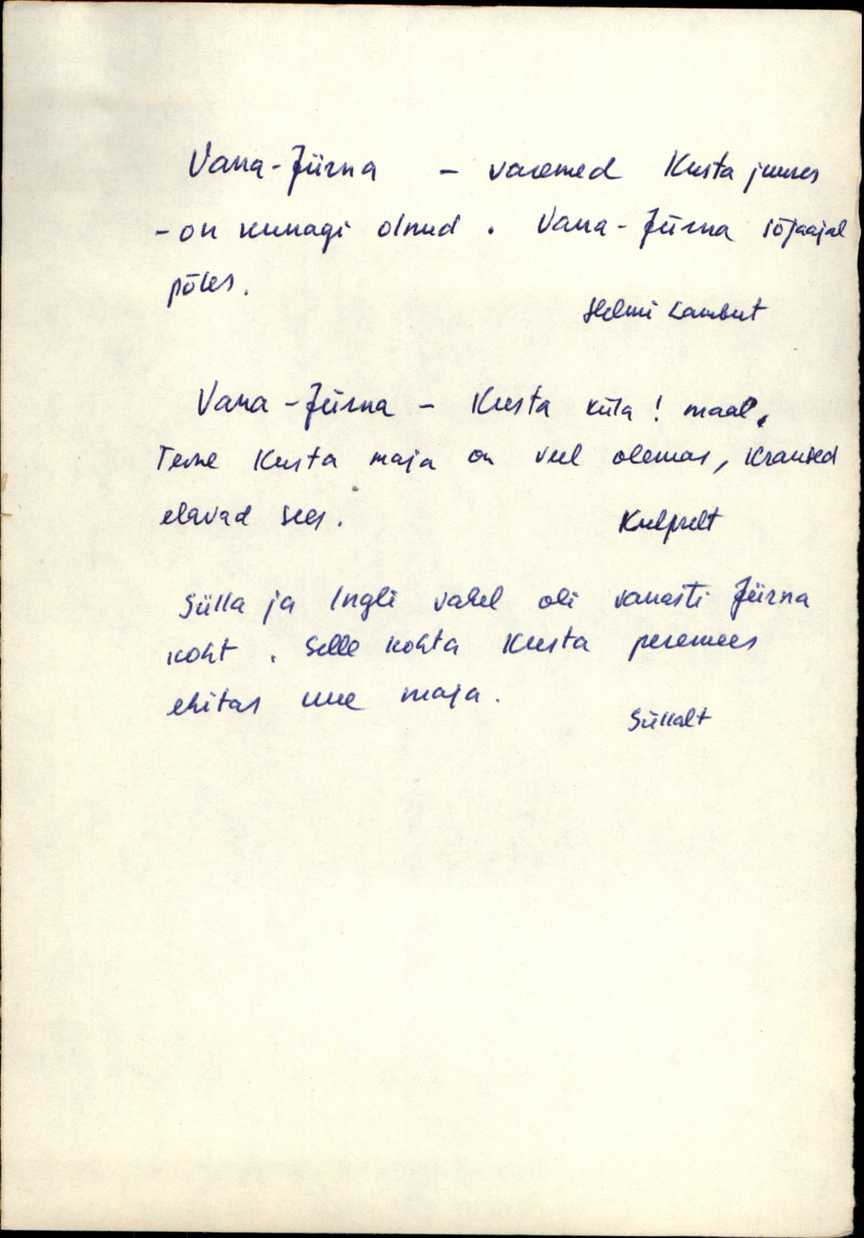 Vana-Jürna – varemed Kusta juures
- on kunagi olnud. Vana-Jürna sõjaajal
põles.
Helmi Lambut
Vana-Jürna – Kusta küla! maal.
Teine Kusta maja on veel olemas, Kraused
elavad sees.
Kulpselt
Sülla ja Ingli vahel oli vanasti Jürna
koht. Selle kohta Kusta peremees
ehitas uue maja.
Süllalt